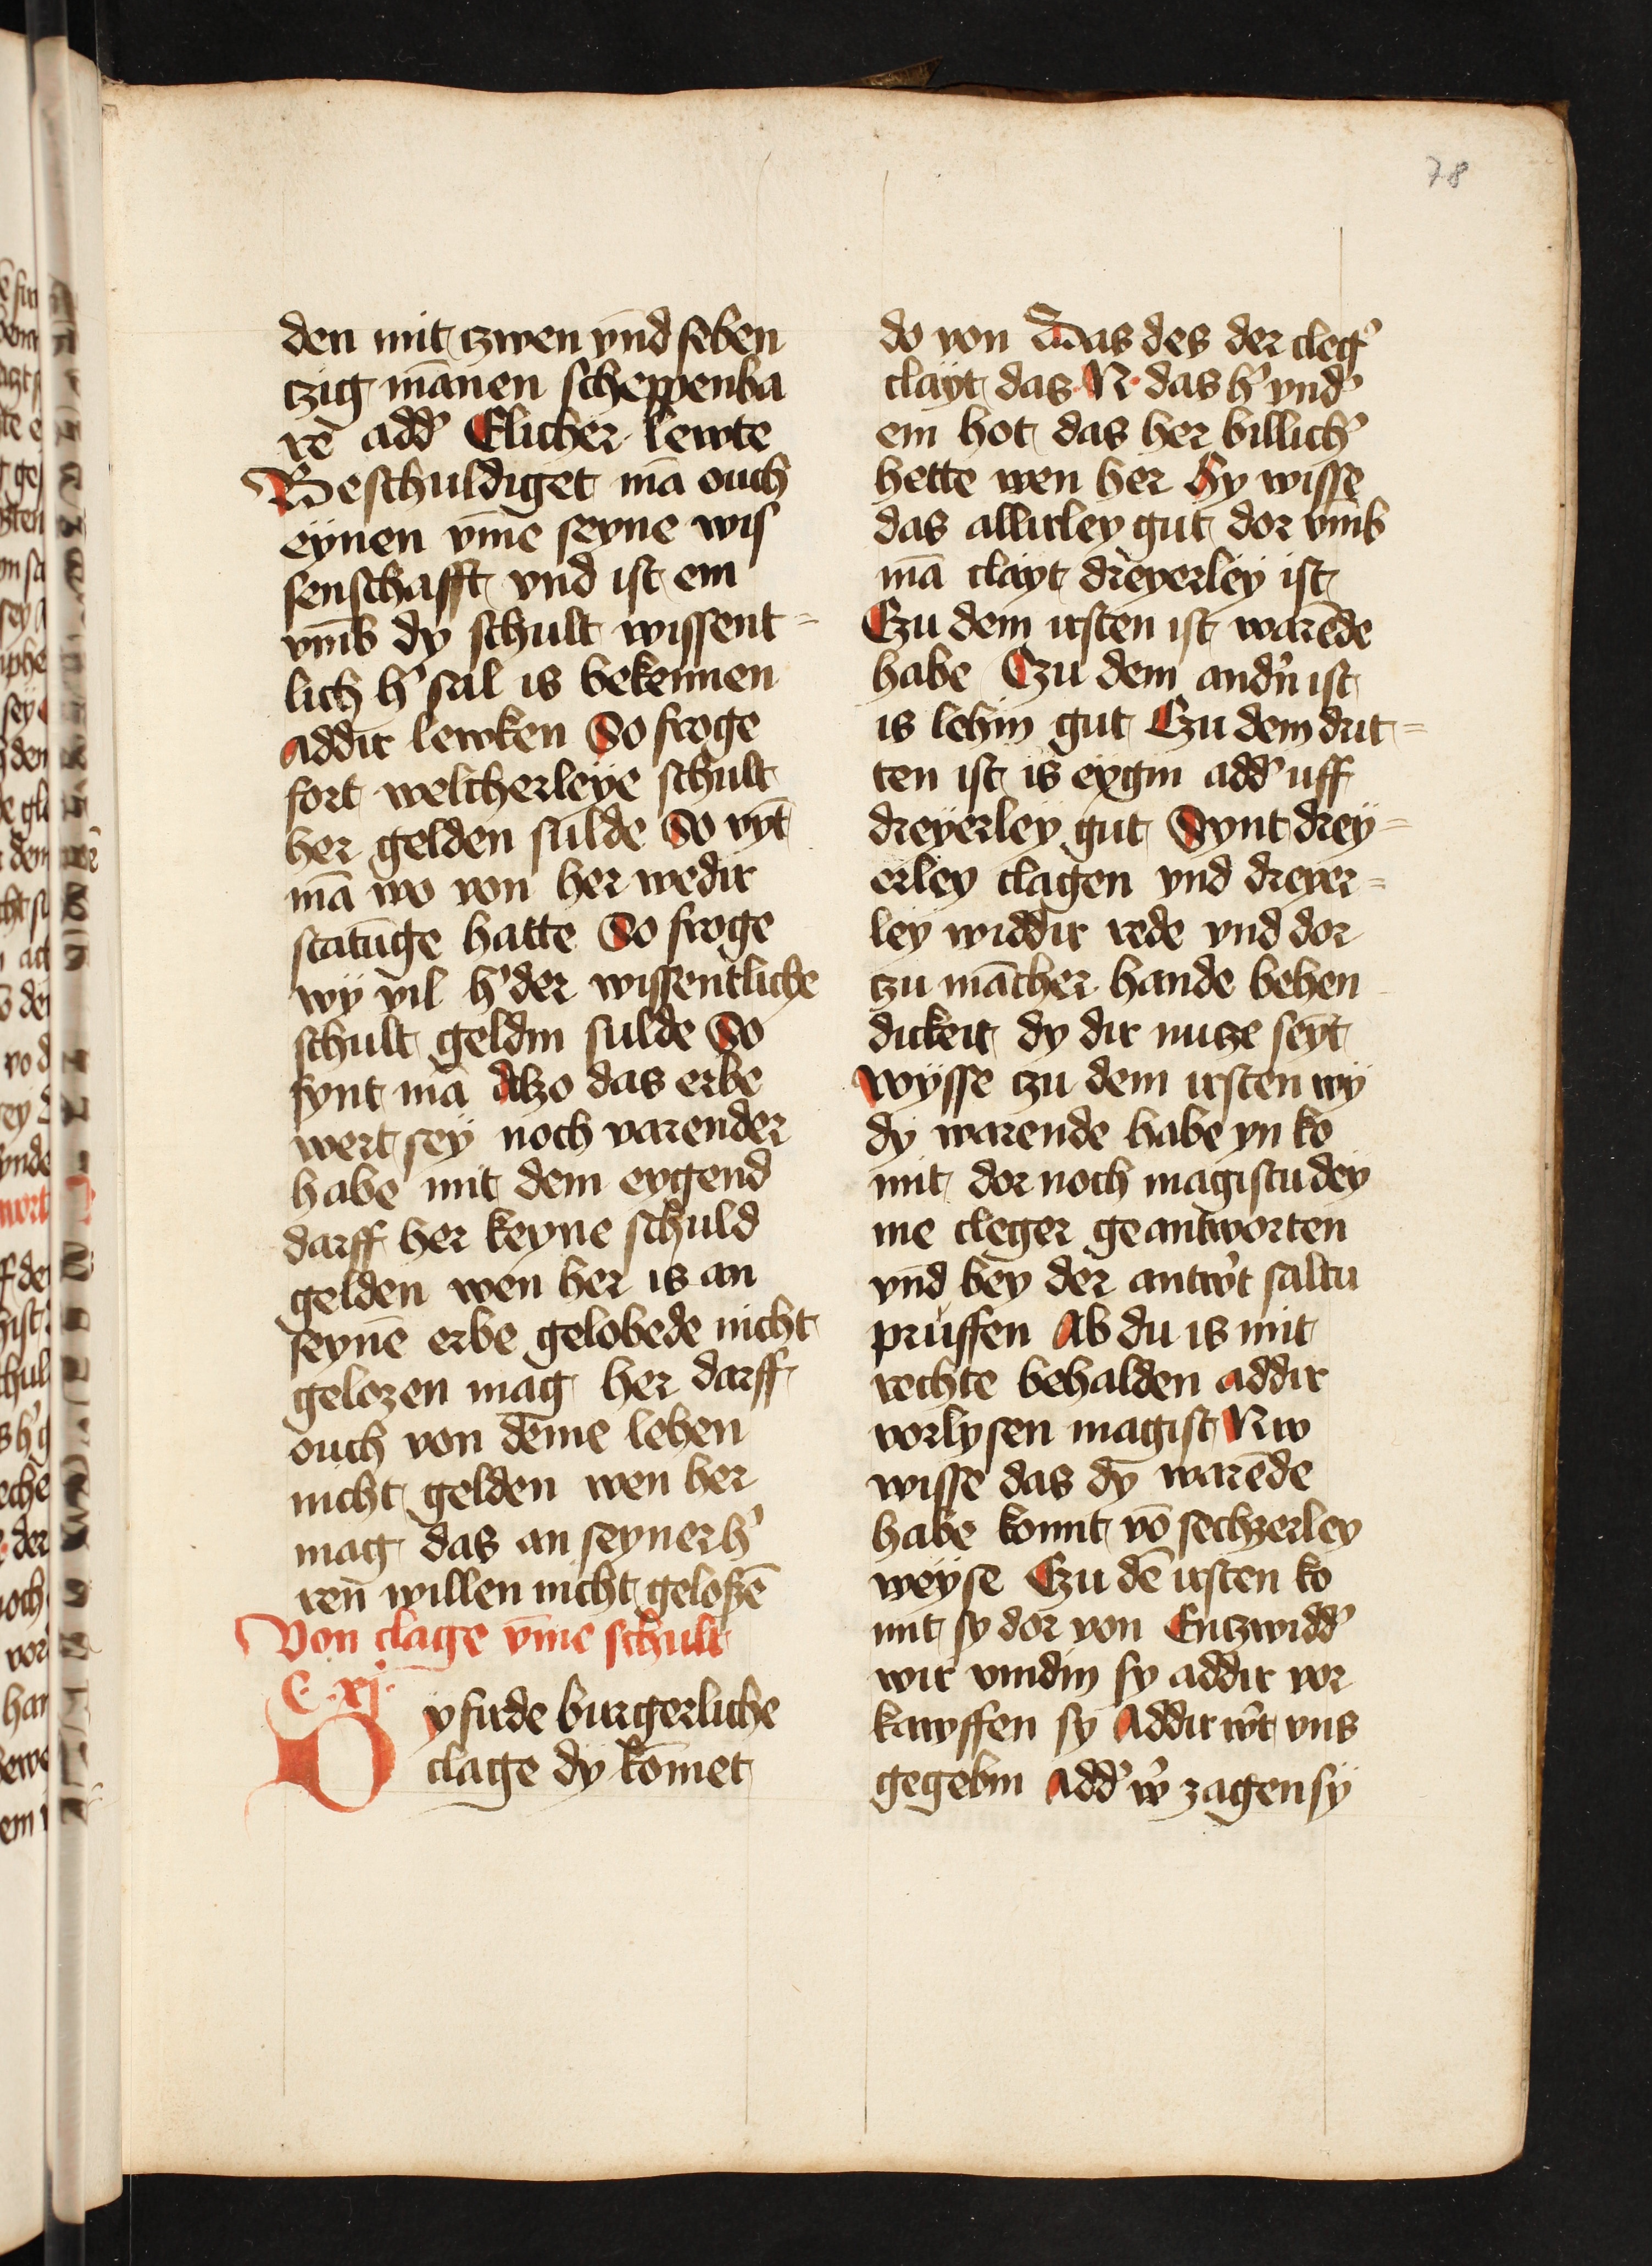 78
den mit czwen vnd seben
czig mānen scheppenba
rē add' Elicher lewte
Beschuldiget mā ouch
eynen vm̄e seyne wis
senschafft vnd ist em
vm̄b dy schult wissent=
lich h' sal is bekennen
addir lewken So froge
fort welcherleye schult
her gelden sulde So vyt
mā wo von her wedir
statūge hatte So froge
wy vil h' der wissentliche
schult geldin sulde So
synt mā Alzo das erbe
wert sey noch varender
habe mit dem eygend
darff her keyne schuld
gelden wen her is an
seynē erbe gelobede nicht
gelozen mag her darff
ouch von dēme lehen
nicht gelden wen her
mag das an seyner h'
ren willen nicht geloszē
Von clage vm̄e schult
C xj
Dy sirde burgerliche
clage dy kōmet
do von Das des der cleg'
clayt das N das h' vnd'
em hot das her billich'
hette wen her Hy wisse
das allirley gut dor vm̄b
mā clayt dreyerley ist
Czu dem irsten ist warēde
habe Czu dem and'n ist
is lehin gut Czu dem drit=
ten ist is eygin add' uff
dreyerley gut Synt drey=
erley clagen vnd dreyer=
ley widdir rede vnd dor
czu mācher hande behen
dickeit dy dir nutze seyt
Wysse czu dem irsten wy
dy warende habe yn ko
mit dor noch magistu dey
me cleger geantworten
vnd bey der antw't saltu
pruffen Ab du is mit
rechte behalden addir
vorlysen magist Nw
wisse das dy warēde
habe komt vō sechzerley
weyse Czu dē irsten ko
mit sy dor von Entzwidd'
wir vindin sy addir vor
kawffen sy Addir w't vns
gegebin Add' w' zagen sy